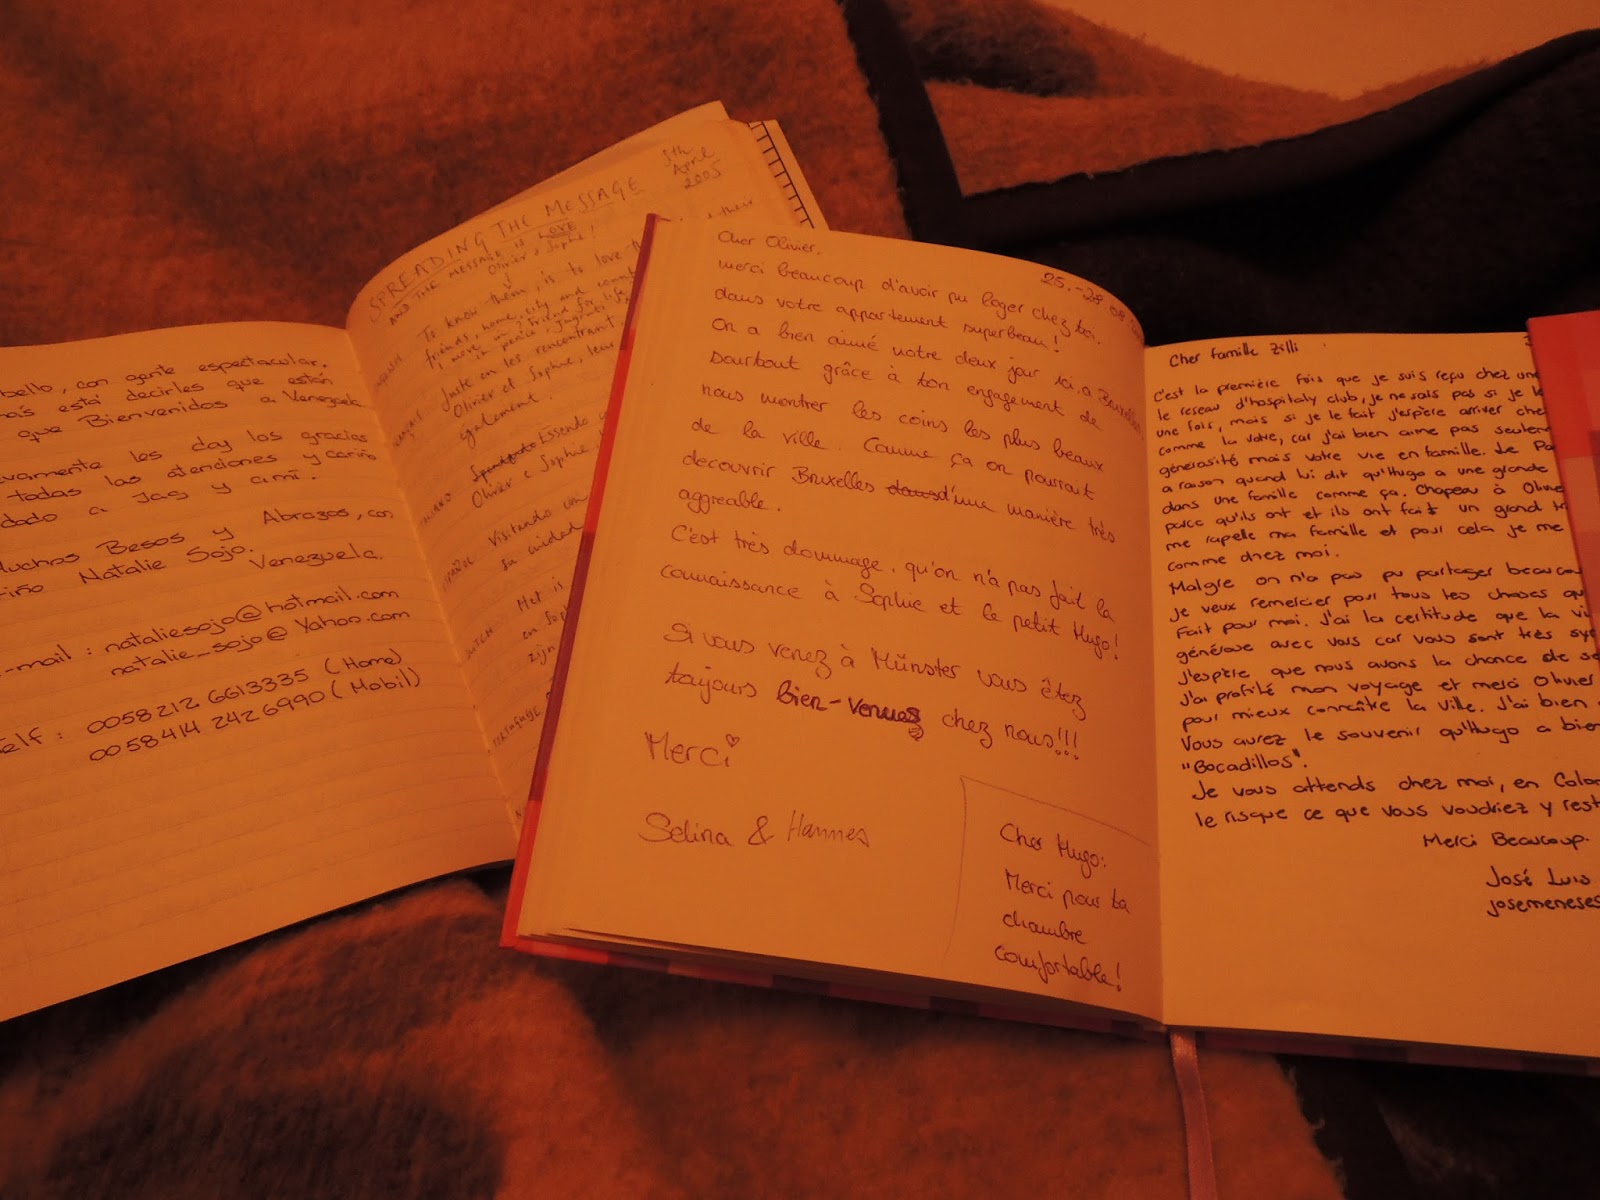 bello, con gente espectacular.
está decirles que están
que Bienvenidos a Venezuela
les doy las gracias
todas las atenciones y cariño
dado a Jag y a mí.
Muchos Besos y Abrazos, con
Natalie Sojo.
Venezuela.
mail : nataliesojo@hotmail.com
natalie_sojo@Yahoo.com
Telf : 0058212 6613335 (Home)
0058414 2426990 (Mobil)
5th
April
2005
SPREADING THE MESSAGE
AND THE MESSAGE IS LOVE
Olivier & Sophie,
To know them, is to love
friends, home, city and
friend for life,
in peace,
Juste en les rencontrant.
Olivier et Sophie, leur
également.
Essendo
Olivier e Sophie,
Visitando un
su ciudad
DUTCH Het is
en Sop
zijn
25.-28.08.
Cher Olivier,
merci beaucoup d'avoir pu loger chez toi.
dans votre appartement superbeau!
On a bien aimé notre deux jour ici à Bruxelles.
Sourtout grâce à ton engagement de
nous montrer les coins les plus beaux
de la ville. Comme ça on pourrait
decouvrir Bruxelles dans d'une manière très
aggreable.
C'est très dommage, qu'on n'a pas fait la
connaissance à Sophie et le petit Hugo!
Si vous venez à Münster vous êtez
toujours bien-venues chez nous!!!
Merci
Selina & Hannes
Cher Hugo:
Merci pour ta
chambre
comfortable!
Cher famille Zilli
C'est la première fois que je suis reçu chez une
le reseau d'hospitaly club, je ne sais pas si je
une fois, mais si je le fait j'espère arriver che
comme la votre, car j'ai bien aime pas seulem
générasité mais votre vie en famille. Le Pa
a raison quand lui dit qu'Hugo a une grande
dans une famille comme ça. Chapeau à Olivie
parce qu'ils ont et ils ont fait un grand tr
me rapelle ma famille et pour cela je me
comme chez moi.
Malgre on n'a pas pu partager beaucou
je veux remercier pour tous tes choses qu
fait pour moi. J'ai la certitude que la vi
généreuse avec vous car vous sont très sy
j'espère que nous avons la chance de se
j'ai profité mon voyage et merci Olivier
pour mieux connaître la ville. J'ai bien
Vous aurez le souvenir qu'Hugo a bien
"Bocadillos".
Je vous attends chez moi, en Colo
le risque ce que vous voudriez y rest
Merci Beaucoup.
José Luis
josemeneses